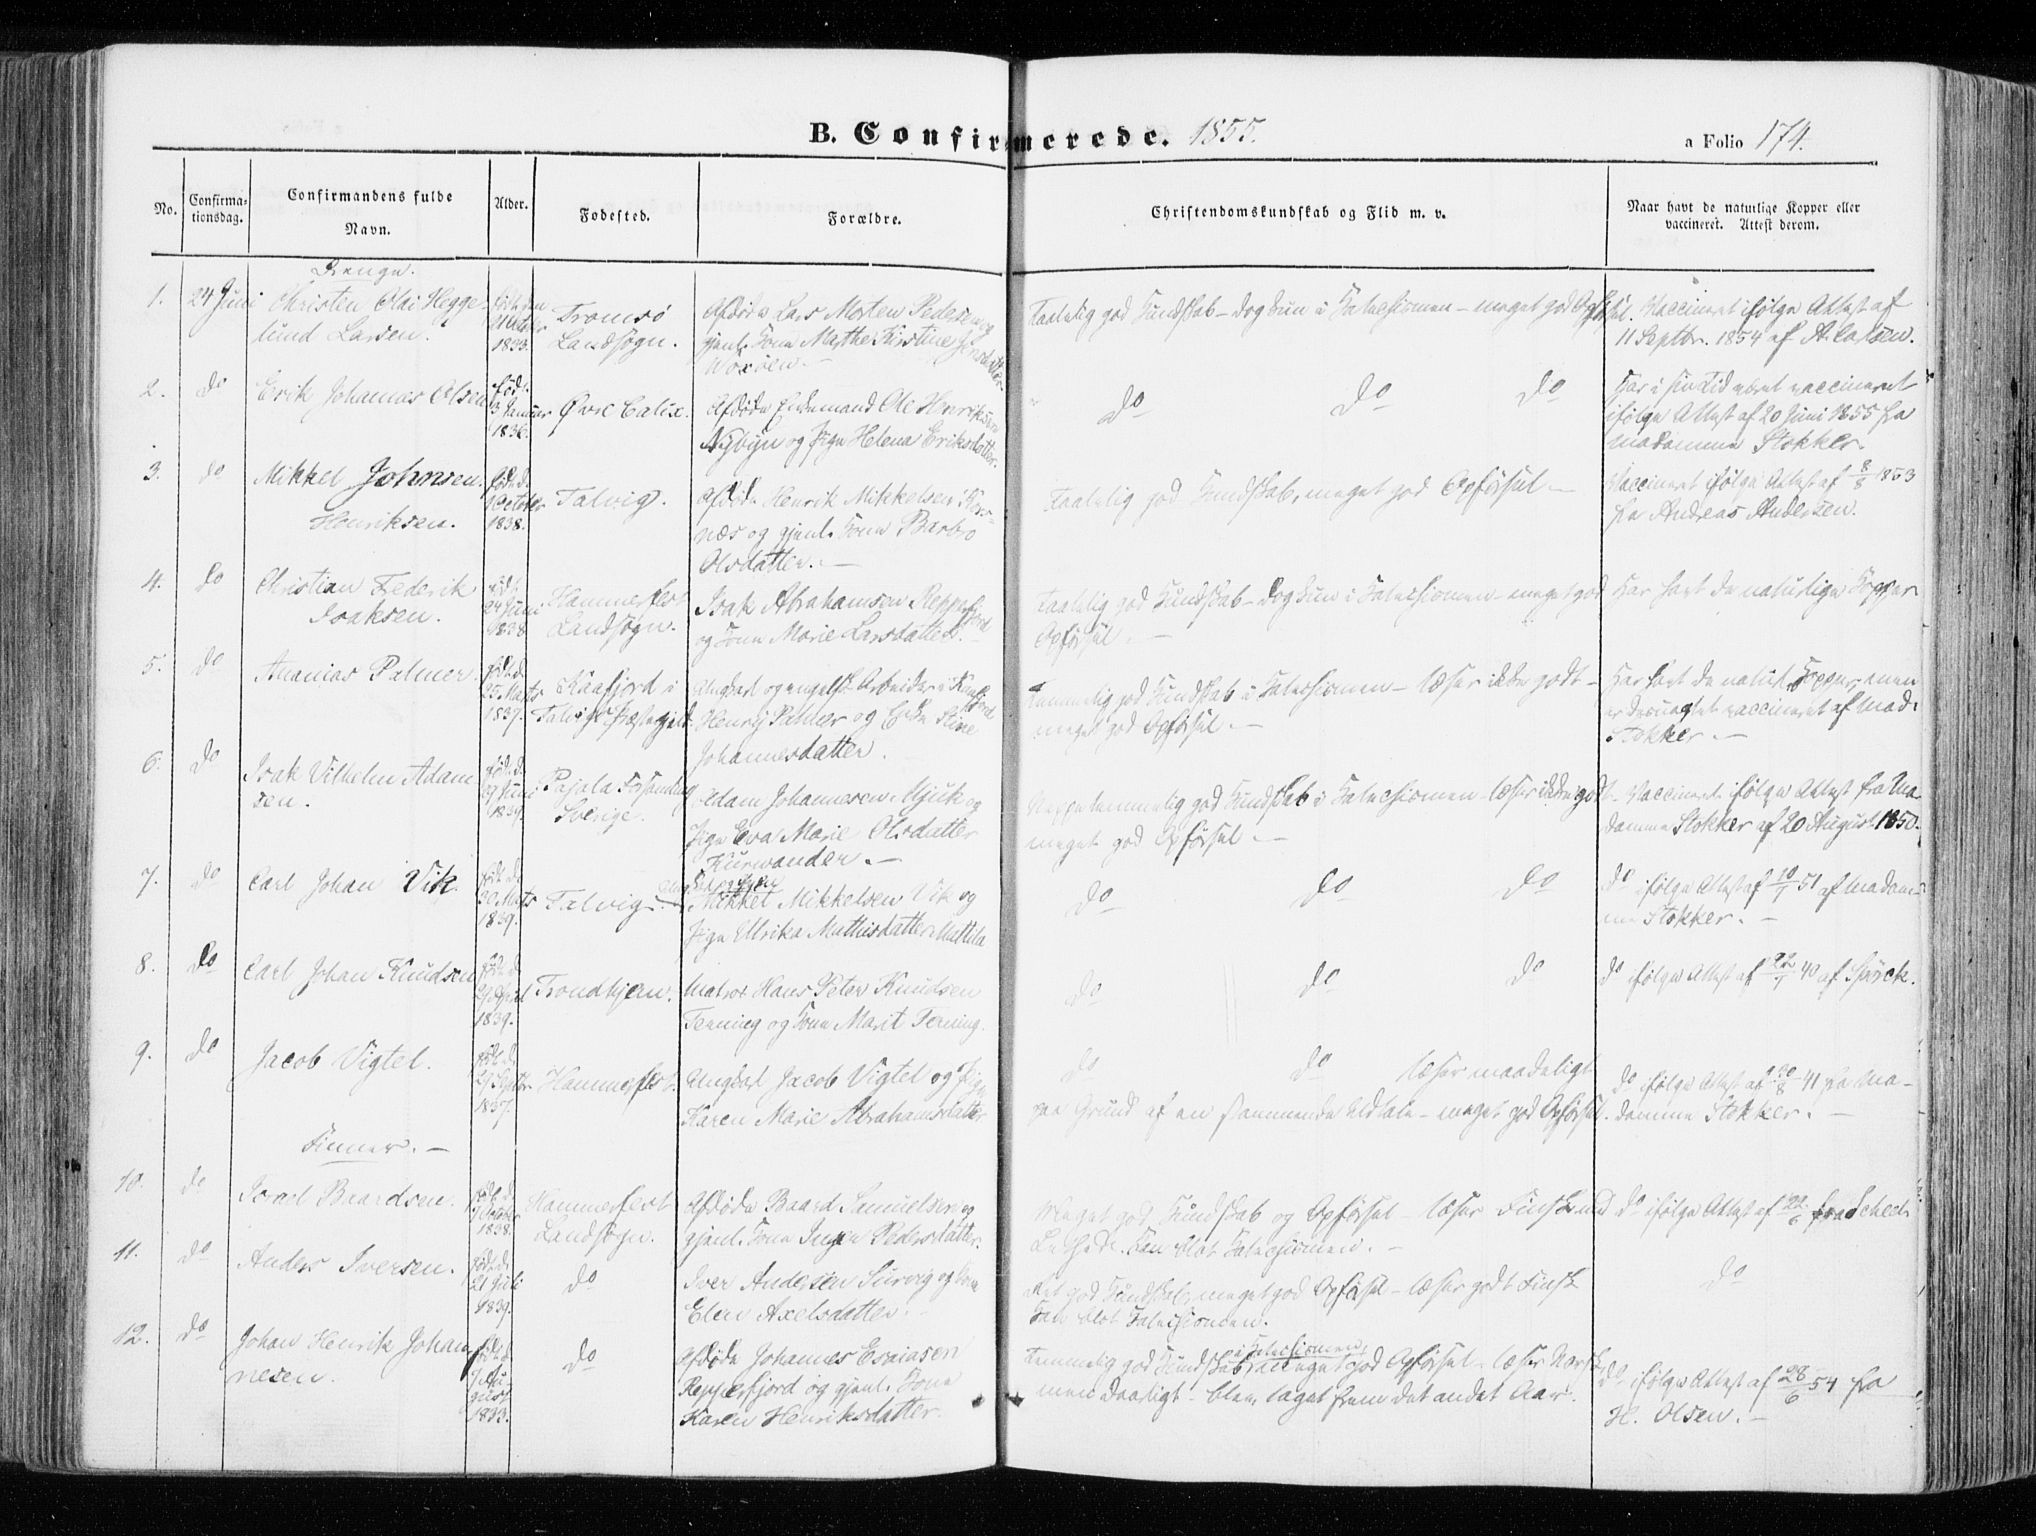 B. Confirmerede. 1855.
a Folio 174.
No.
Confirma-
tionsdag.
Confirmandens fulde
Navn.
Alder.
Fødested.
Forældre.
Christendomskundskab og Flid m. v.
Naar havt de naturlige Kopper eller
vaccineret. Attest derom.
Drenge.
1. 24 Juni Christen Olai Hegge-
lund Larsen.
født den
October
1833.
Tromsø
Landsogn.
Afdøde Lars Morten Pedersen og
gjenl. Kone Marthe Kirstine Jensdatter
Woxøen. -
Taalelig god Kundskab - dog kun i Katechismen - meget god Opførsel.
Vaccineret ifølge Attest af
11 Septbr. 1854 af A. Larsen.
2. do Erik Johannes Olsen
født
3 Januar
1836.
Øvre Calix.
Afdøde Ole Henriksen
Nybyn og Pige Helena Eriksdatter.
do do do
Har i sin Tid været vaccineret
ifølge Attest af 20 Juni 1855 fra
Madamme Stokker.
3. do Mikkel Johnsen
Henriksen.
født d.
October
1838.
Talvig.
Afdøde Henrik Mikkelsen Kors-
næs og gjenl. Kone Barbro
Olsdatter. -
Taalelig god Kundskab, meget god Opførsel -
Vaccineret ifølge Attest af 8/8 1853
fra Andreas Andersen.
4. do Christian Frederik
Isaksen.
født
24 Juni
1838
Hammerfest
Landsogn.
Isak Abrahamsen Repparfjord
og Kone Marie Larsdatter. -
Taalelig god Kundskab - dog kun i Katechismen - meget god
Opførsel. -
Har havt de naturlige Kopper
5. do Ananias Palmer
født d.
25 Marts
1837.
Kaafjord i
Talvigs Præstegjeld.
Ungkarl og engelsk Arbeider i Kaafjord
Henry Palmer og Enke Stine
Johannesdatter.
Temmelig god Kundskab i Katechismen - læser ikke godt -
meget god Opførsel. -
Har havt de naturl. Kopper, men
er desuagtet vaccineret af Mad.
Stokker. -
6. do Isak Vilhelm Adam-
sen.
født d.
Juni
1839.
Pajala Forsamling
Sverige.
Adam Johannesen Mjuk og
Pige Eva Marie Olsdatter
Kurwanden. -
Neppe temmelig god Kundskab i Katechismen - læser ikke godt -
meget god Opførsel. -
Vaccineret ifølge Attest fra Ma-
damme Stokker af 20 August 1850.
7. do Carl Johan Vik.
født d.
30 Marts
1839.
Talvig.
Mikkel Mikkelsen Vik og
Pige Ulrika Mathisdatter Mattila
do do do
do ifølge Attest af 10/1 51 af Madam-
me Stokker. -
8. do Carl Johan Knudsen
født d.
April
1839.
Trondhjem.
Matros Hans Peter Knudsen
Ferning og Kone Marit Ferning.
do do do
do ifølge Attest af 22/1 40 af Spörck.
9. do Jacob Vigtel.
født d.
Septbr.
1837.
Hammerfest.
Ungkarl Jacob Vigtel og Pige
Karen Marie Abrahamsdatter.
do do læser maadeligt
paa Grund af en stammende Udtale - meget god Opførsel.
do ifølge Attest af 30/8 41 fra Ma-
damme Stokker. -
Finner. -
10. do Israel Baardsen.
født d.
October
1838.
Hammerfest
Landsogn.
Afdøde Baard Samuelsen og
gjenl. Kone Inger Pedersdatter.
Meget god Kundskab og Opførsel - læser Finsk med
Kan blot Katechismen. -
do ifølge Attest af 22/6 fra
11. do Anders Iversen.
født d.
21 Juli
1839.
do
Iver Andersen Survig og Kone
Elen Axelsdatter.
Ret god Kundskab, meget god Opførsel - læser godt Finsk
Kan blot Katechismen.
do
12. do Johan Henrik Johan-
nesen.
født d.
Au-
gust
1833.
do
Afdøde Johannes Esaiasen
Repperfjord og gjenl. Kone
Karen Henriksdatter.
Temmelig god Kundskab i Katechismen, meget god Opførsel - læser Norsk
men daarligt - blev taget frem det andet Aar.
do ifølge Attest af 28/6 54 fra
H. Olsen. -